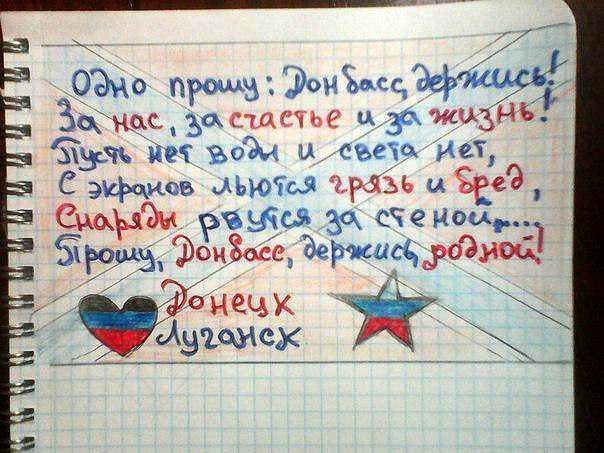 Одно прошу: Донбасс, держись!
За нас, за счастье и за жизнь!
Пусть нет воды и света нет,
С экранов льются грязь и бред,
Снаряды рвутся за стеной.....
Прошу, Донбасс, держись, родной!
Донецк
Луганск